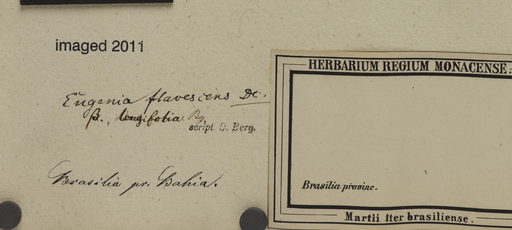 imaged 2011
Eugenia flavescens DC.
β., longifolia Bg
script. O. Berg.
Brasilia pr. Bahia.
HERBARIUM REGIUM MONACENSE.
Brasilia provinc.
Martii Iter brasiliense.